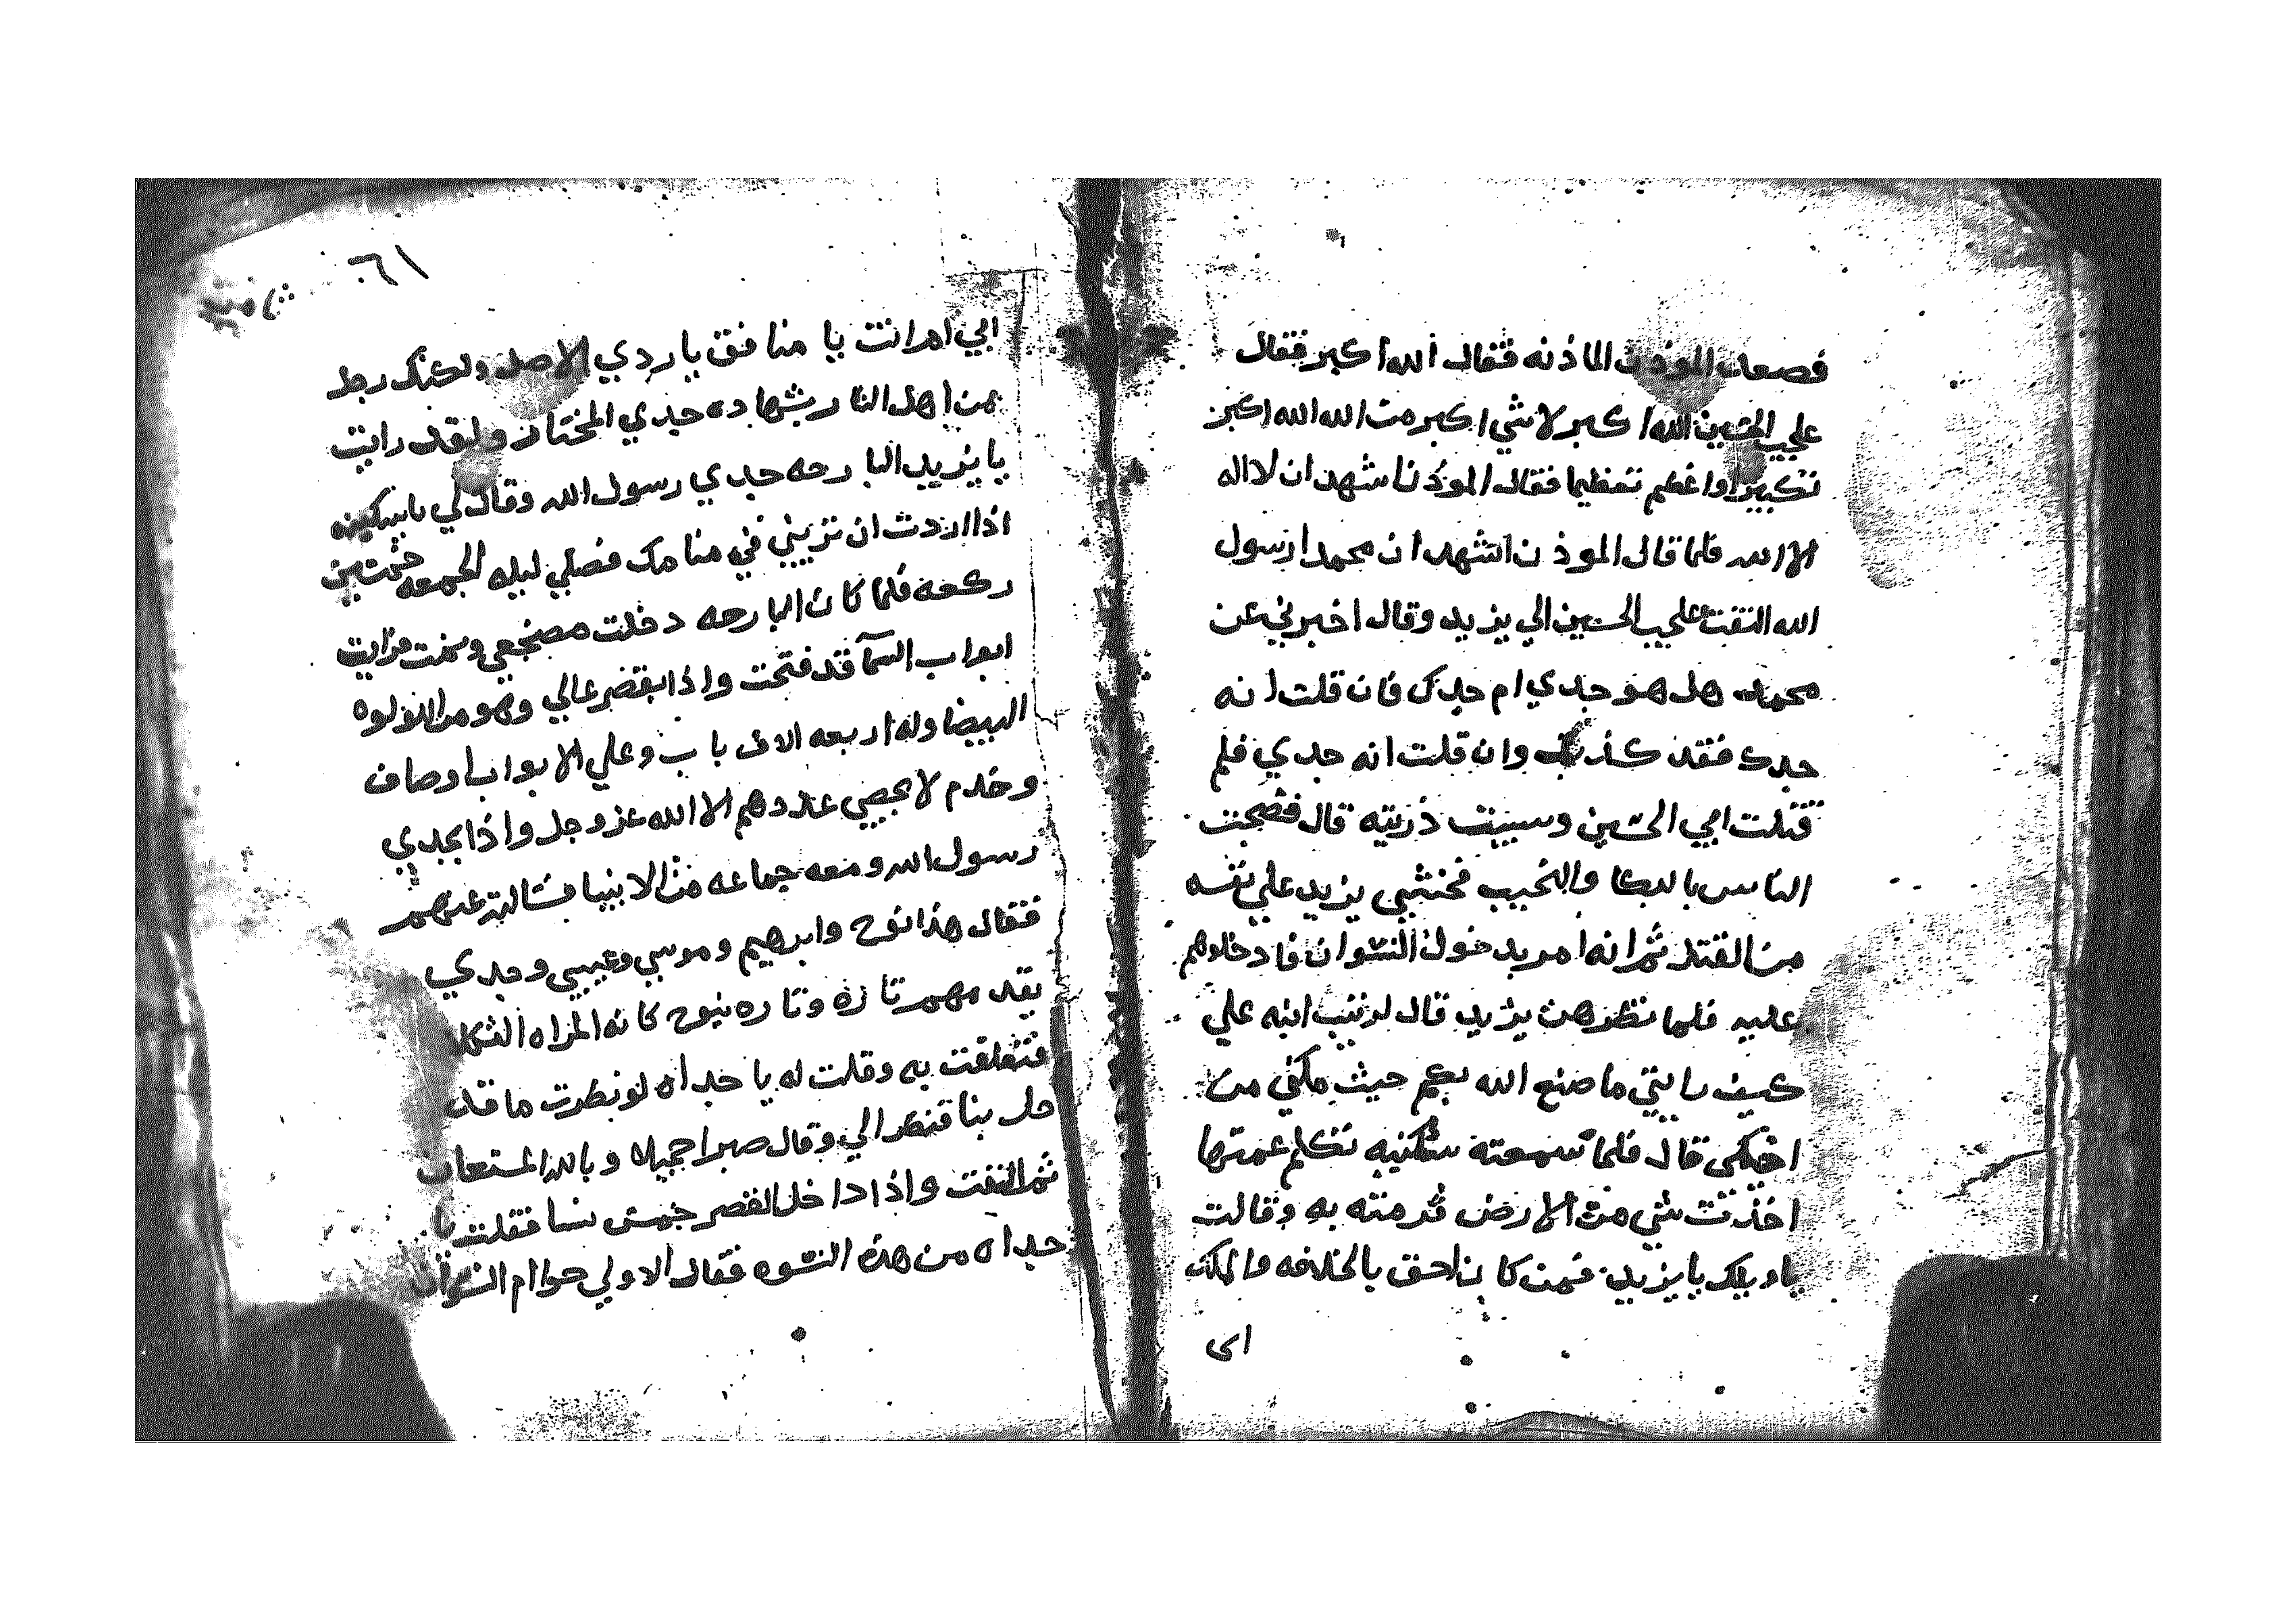 فصعد الموذن الماذنه فقال الله اكبر فقال
علي بن الحسين الله اكبر لا شي اكبر من الله الله اكبر
تكبيرا واعظم تعظيما فقال الموذن اشهد ان لا اله
الا الله فلما قال الموذن اشهد ان محمدا رسول
الله التفت علي بن الحسين الي يزيد وقال اخبرني عن
محمد هل هو جدي ام جدك فان قلت انه
جدك فقد كذبت وان قلت انه جدي فلم
قتلت ابي الحسين وسبيت ذريته قال فضجت
الناس بالبكا والنحيب فخشي يزيد علي نفسه
من القتل ثم انه امر بدخول النسوان فادخلوهم
عليه فلما نظرهن يزيد قال لزينب ابنه علي
كيف رايتي ما صنع الله بكم حيث مكني من
اخيكي قال فلما سمعته سكينه تكلم عمتها
اخذت شي من الارض ورمته به وقالت
يا ويلك يا يزيد فمن كان احق بالخلافه والملك
ابي
٦١
ابي ام انت يا منافق يا ردي الاصل ولكنك رجل
من اهل النار بشهاده جدي المختار ولقد رايت
يا يزيد البارحه جدي رسول الله وقال لي يا سكينه
اذا اردت ان تريني في منامك فصلي ليله الجمعه خمسين
ركعه فلما كان البارحه دخلت مضجعي ونمت فرايت
ابواب السمآ قد فتحت واذا بقصر عالي وهو من اللولوه
البيضا وله اربعه الاف باب وعلي الابواب اوصاف
وخدم لا يحصي عددهم الا الله عز وجل واذا بجدي
رسول الله ومعه جماعه من الانبيا فسالته عنهم
فقال هذا نوح وابرهيم وموسي وعيسي وجدي
يقدمهم تاره وتاره ينوح كانه المراه الثكلا
فتعلقت به وقلت له يا جداه لو نظرت ما قد
حل بنا فنظر الي وقال صبرا جميلا وبالله المستعان
ثم التفت واذا داخل القصر خمس نسا فقلت يا
جداه من هذه النسوه فقال الاولي حوا ام النسوان